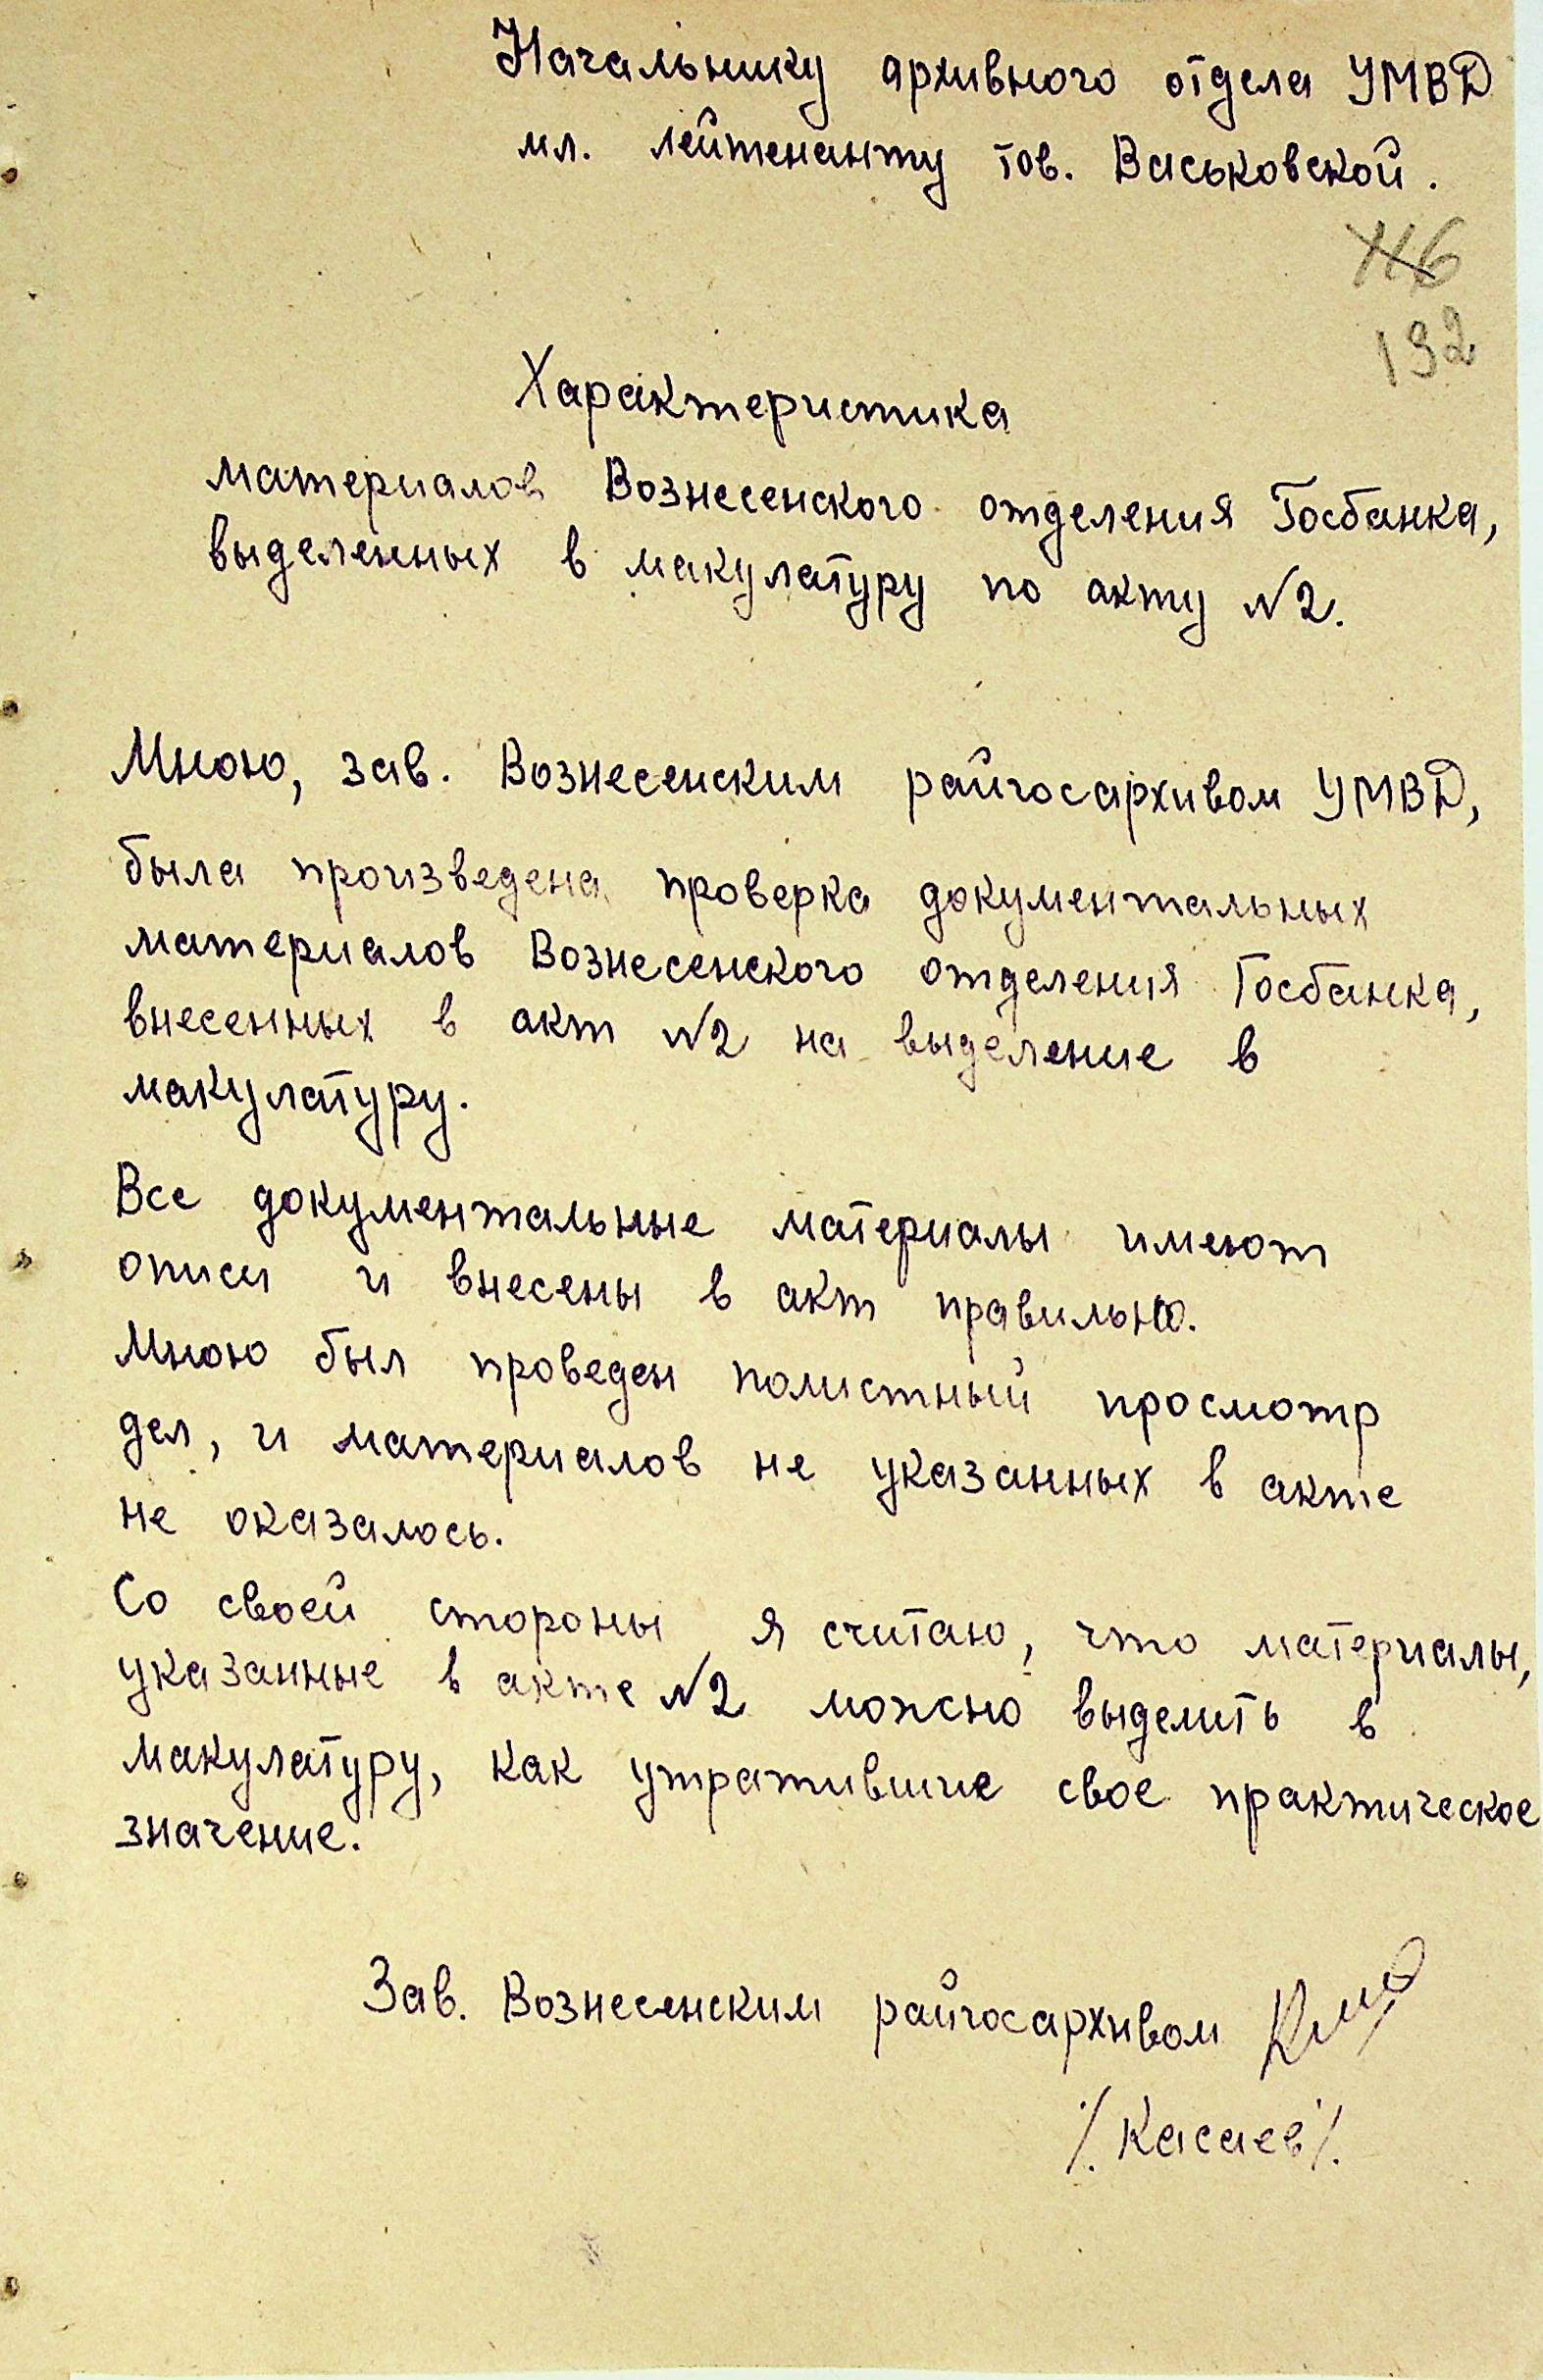 Начальнику архивного отдела УМВД
мл. лейтенанту тов. Васьковской.
192
Характеристика
материалов Вознесенского отделения Госбанка,
выделенных в макулатуру по акту №2.
Мною, зав. Вознесенским райгосархивом УМВД,
была произведена проверка документальных
материалов Вознесенского отделения Госбанка,
внесенных в акт №2 на выделение в
макулатуру.
Все документальные материалы имеют
описи и внесены в акт правильно.
Мною был проведен полистный просмотр
дел, и материалов не указанных в акте
не оказалось.
Со своей стороны я считаю, что материалы,
указанные в акте №2 можно выделить в
макулатуру, как утратившие свое практическое
значение.
Зав. Вознесенским райгосархивом
/. Касаев /.